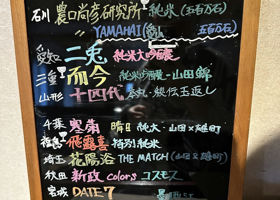 石川 農口尚彦研究所 純米(五百万石)
〃 YAMAHAI
愛知 二兎 純米大吟醸
三重 而今 純米吟醸 山田錦
山形 十四代 秘伝玉返し
千葉 寒菊 純大・山田×雄町
飛露喜 特別純米
埼玉 花陽浴 THE MATCH (山田×雄町)
秋田 新政 colors コスモス
宮城 DATE 7